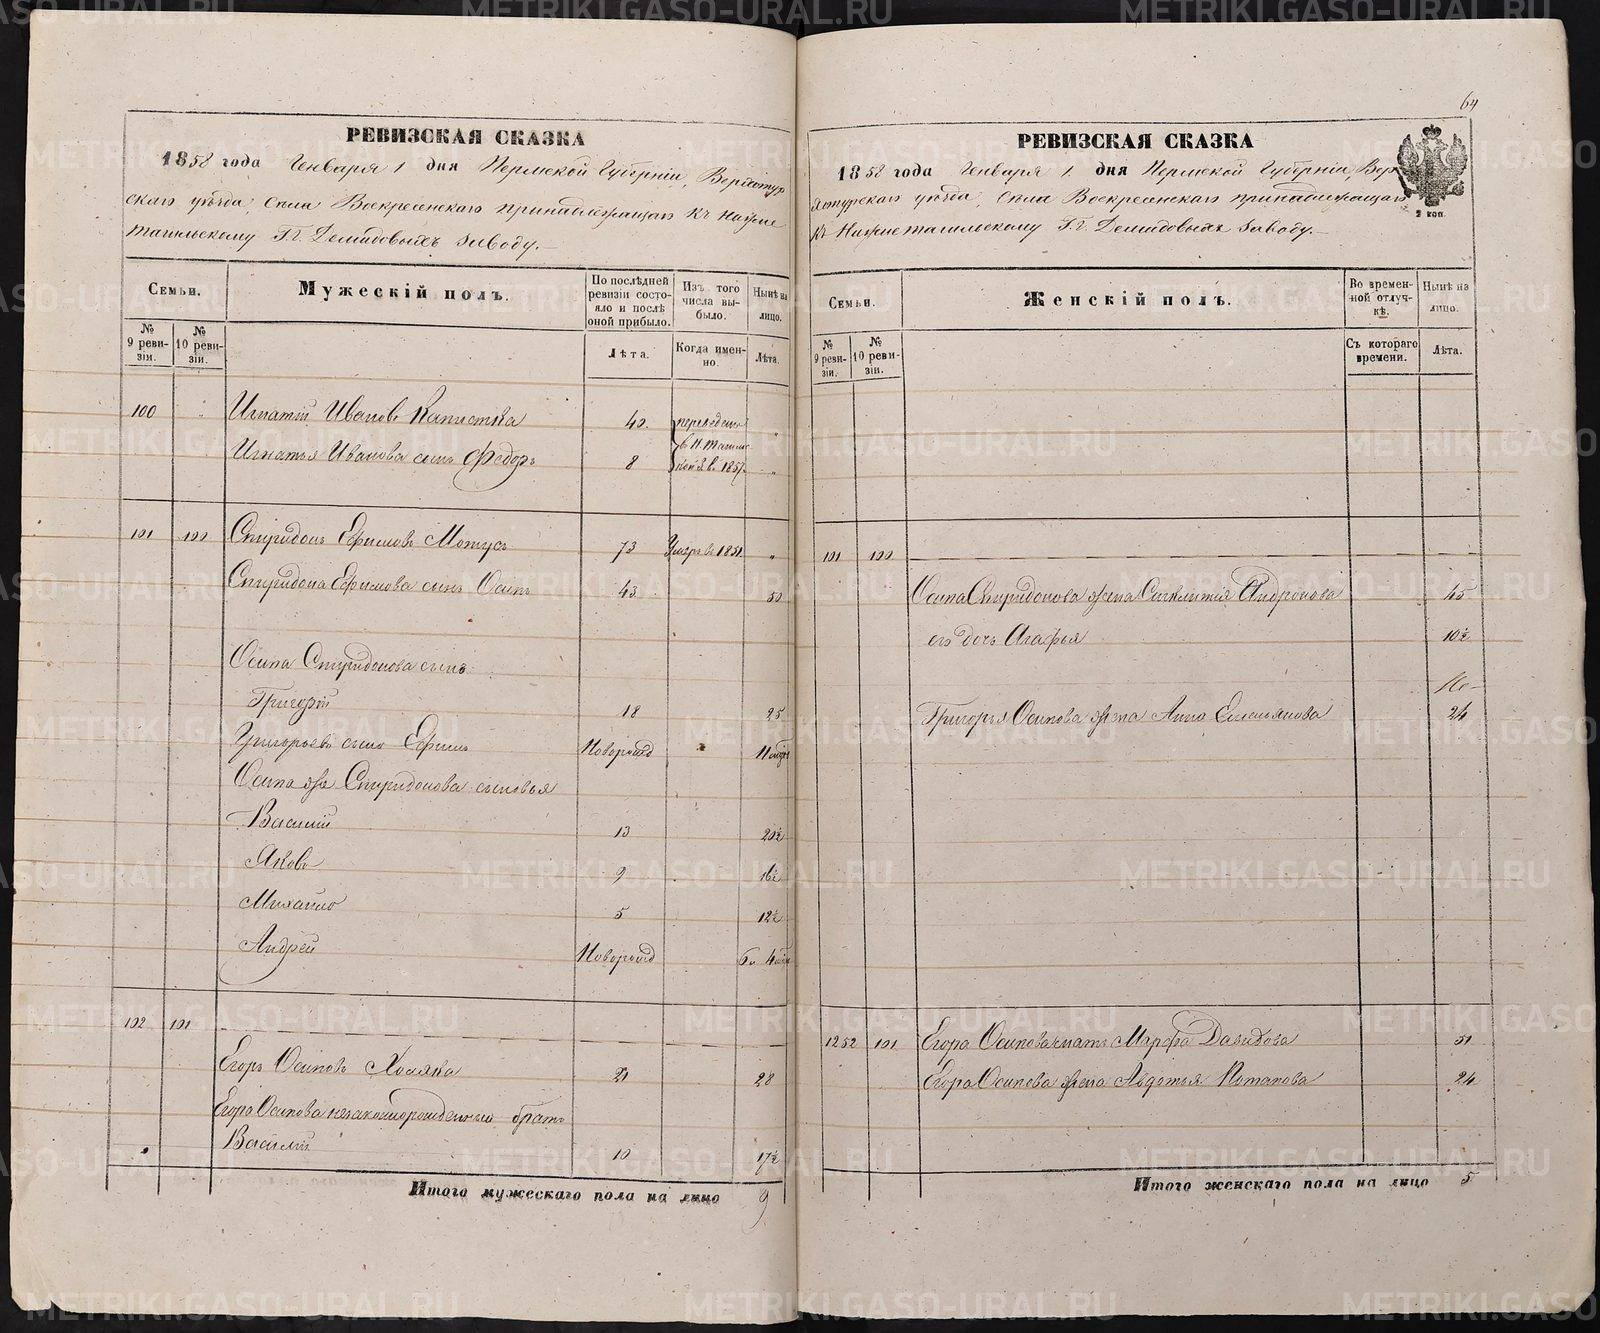 РЕВИЗСКАЯ СКАЗКА
1858 года Генваря 1 дня Пермской Губерніи, Верхотур
скаго уѣзда, Села Воскресенскаго принадлежащаго къ Нижне
тагильскому Г.г. Демидовыхъ заводу.
Семьи.
Мужескій полъ.
По послѣдней ревизіи состояло и послѣ оной прибыло.
Изъ того числа выбыло.
Нынѣ на лицо.
№ 9 ревизіи.
№ 10 ревизіи.
Лѣта.
Когда именно.
Лѣта.
100 Игнатій Ивановъ Капустка 40. переведены
Игнатья Иванова сынъ Федоръ 8 в Н. Тагильс 1857
101 100 Спиридонъ Ефимовъ Мотусъ 73 Умеръ в 1851 "
Спиридона Ефимова сынъ Осипъ 43 50
Осипа Спиридонова сынъ
Григорій 18 25
Григорьевъ сынъ Ефимъ Новорожд
Осипа же Спиридонова сыновья
Василій 13 20½
Яковъ 9 16½
Михайло 5 12½
Андрей Новорожд
102 101
Егоръ Осиповъ Холявка 21 28
Егора Осипова незаконнорожденный братъ
Василій 10 17½
Итого мужескаго пола на лицо 9
64
РЕВИЗСКАЯ СКАЗКА
1858 года Генваря 1 дня Пермской Губерніи, Вер
хотурскаго уѣзда, Села Воскресенскаго принадлежащаго
къ Нижнетагильскому Г.г. Демидовыхъ заводу.
2 коп.
Семьи.
Женскій полъ.
Во временной отлучкѣ.
Нынѣ на лицо.
№ 9 ревизіи.
№ 10 ревизіи.
Съ котораго времени.
Лѣта.
101 100
Осипа Спиридонова жена Сигклитія Андронова 45
его дочь Агафья 10½
Григорья Осипова жена Анна Емельянова 24
1252 101 Егора Осипова мать Марфа Давидова 51
Егора Осипова жена Авдотья Потапова 24
Итого женскаго пола на лицо 5
METRIKI.GASO-URAL.RU